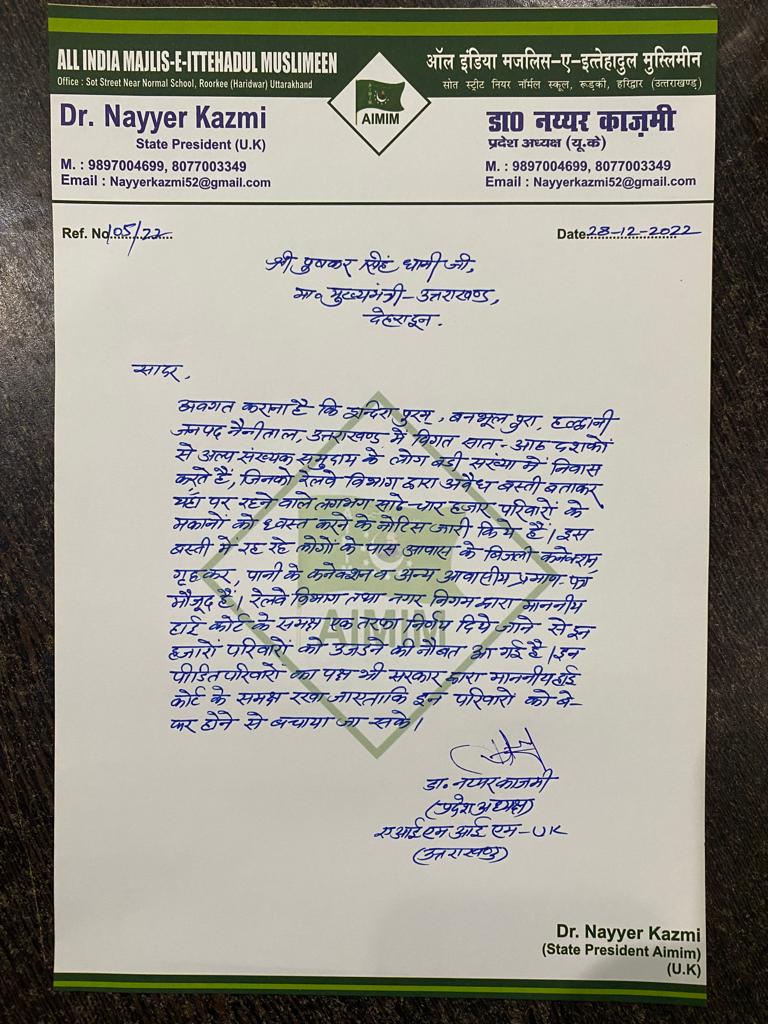 ALL INDIA MAJLIS-E-ITTEHADUL MUSLIMEEN
Office : Sot Street Near Normal School, Roorkee (Haridwar) Uttarakhand
ऑल इंडिया मजलिस-ए-इत्तेहादुल मुस्लिमीन
सोत स्ट्रीट नियर नॉर्मल स्कूल, रूड़की, हरिद्वार (उत्तराखण्ड)
AIMIM
Dr. Nayyer Kazmi
State President (U.K)
M. : 9897004699, 8077003349
Email : Nayyerkazmi52@gmail.com
डा0 नय्यर काज़मी
प्रदेश अध्यक्ष (यू.के)
M. : 9897004699, 8077003349
Email : Nayyerkazmi52@gmail.com
Ref. No. 105/22
Date 28-12-2022
श्री पुष्कर सिंह धामी जी,
मा० मुख्यमंत्री-उत्तराखण्ड,
देहरादून.
सादर,
अवगत कराना है कि इन्दिरा पुरम्, बनभूलपुरा, हल्द्वानी
जनपद नैनीताल, उत्तराखण्ड में विगत सात-आठ दशकों
से अल्प संख्यक समुदाय के लोग बडी संख्या में निवास
करते हैं, जिनको रेलवे विभाग द्वारा अवैध बस्ती बताकर
यहाँ पर रहने वाले लगभग साढे-चार हजार परिवारों के
मकानों को ध्वस्त करने के नोटिस जारी किये हैं। इस
बस्ती में रह रहे लोगों के पास आवास के बिजली कनेक्शन,
गृहकर, पानी के कनेक्शन व अन्य आवासीय प्रमाण-पत्र
मौजूद हैं। रेलवे विभाग तथा नगर निगम द्वारा माननीय
हाई कोर्ट के समक्ष एक तरफा निर्णय दिये जाने से इन
हजारों परिवारों को उजडने की नौबत आ गई है। इन
पीडित परिवारों का पक्ष भी सरकार द्वारा माननीय हाई
कोर्ट के समक्ष रखा जाए ताकि इन परिवारों को बे-
घर होने से बचाया जा सके।
AIMIM
डा. नय्यर काजमी
(प्रदेश अध्यक्ष)
एआईएमआईएम-UK
(उत्तराखण्ड)
Dr. Nayyer Kazmi
(State President Aimim)
(U.K)